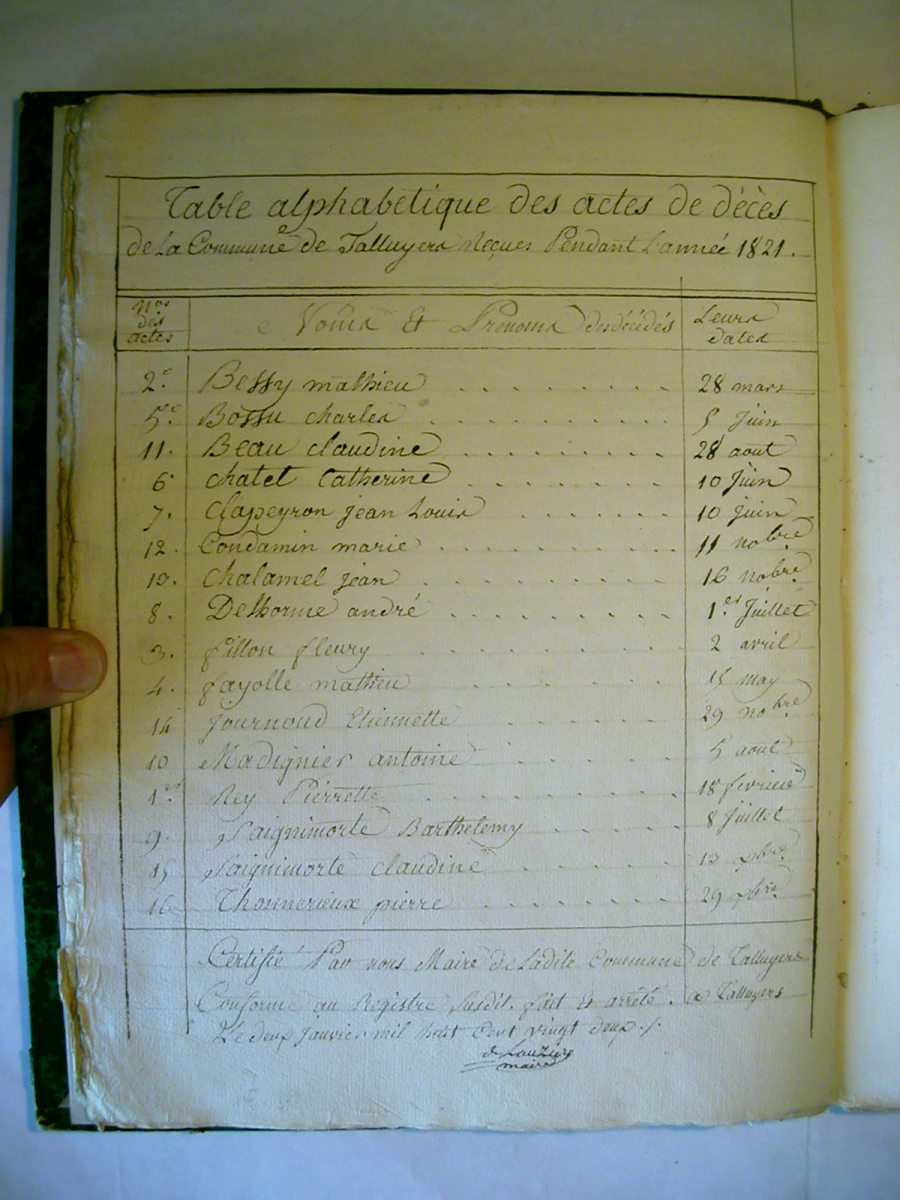 Table alphabétique des actes de décès
de La Commune de Talluyers Reçues Pendant L'année 1821.
N.os des actes
Noms Et Prénoms des décédés
Leurs dates
2.e Bessy mathieu 28 mars
5.e Bossu charles 5 Juin
11. Beau Claudine 28 aout
6. chatet Catherine 10 Juin
7. Clapeyron jean Louis 10 juin
12. Condamin marie 11 nobre
13. Chalamel jean 16 nobre
8. Delhorme andré 1.er Juillet
3. fillon fleury 2 avril
4. fayolle mathieu 15 may
14 Journoud Etiennette 29 nobre
10 Madignier antoine 5 aout
1.er Rey Pierrette 18 fevrier
9. Saignimorte Barthelemy 8 Juillet
15 Saignimorte Claudine 13 xbre
16 Thonnerieux pierre 29 xbre
Certifié Par nous Maire de Ladite Commune de Talluyers
Conforme au Registre Susdit. fait et arrêté. a Talluyers
Le deux janvier mil huit Cent vingt deux ./.
maire